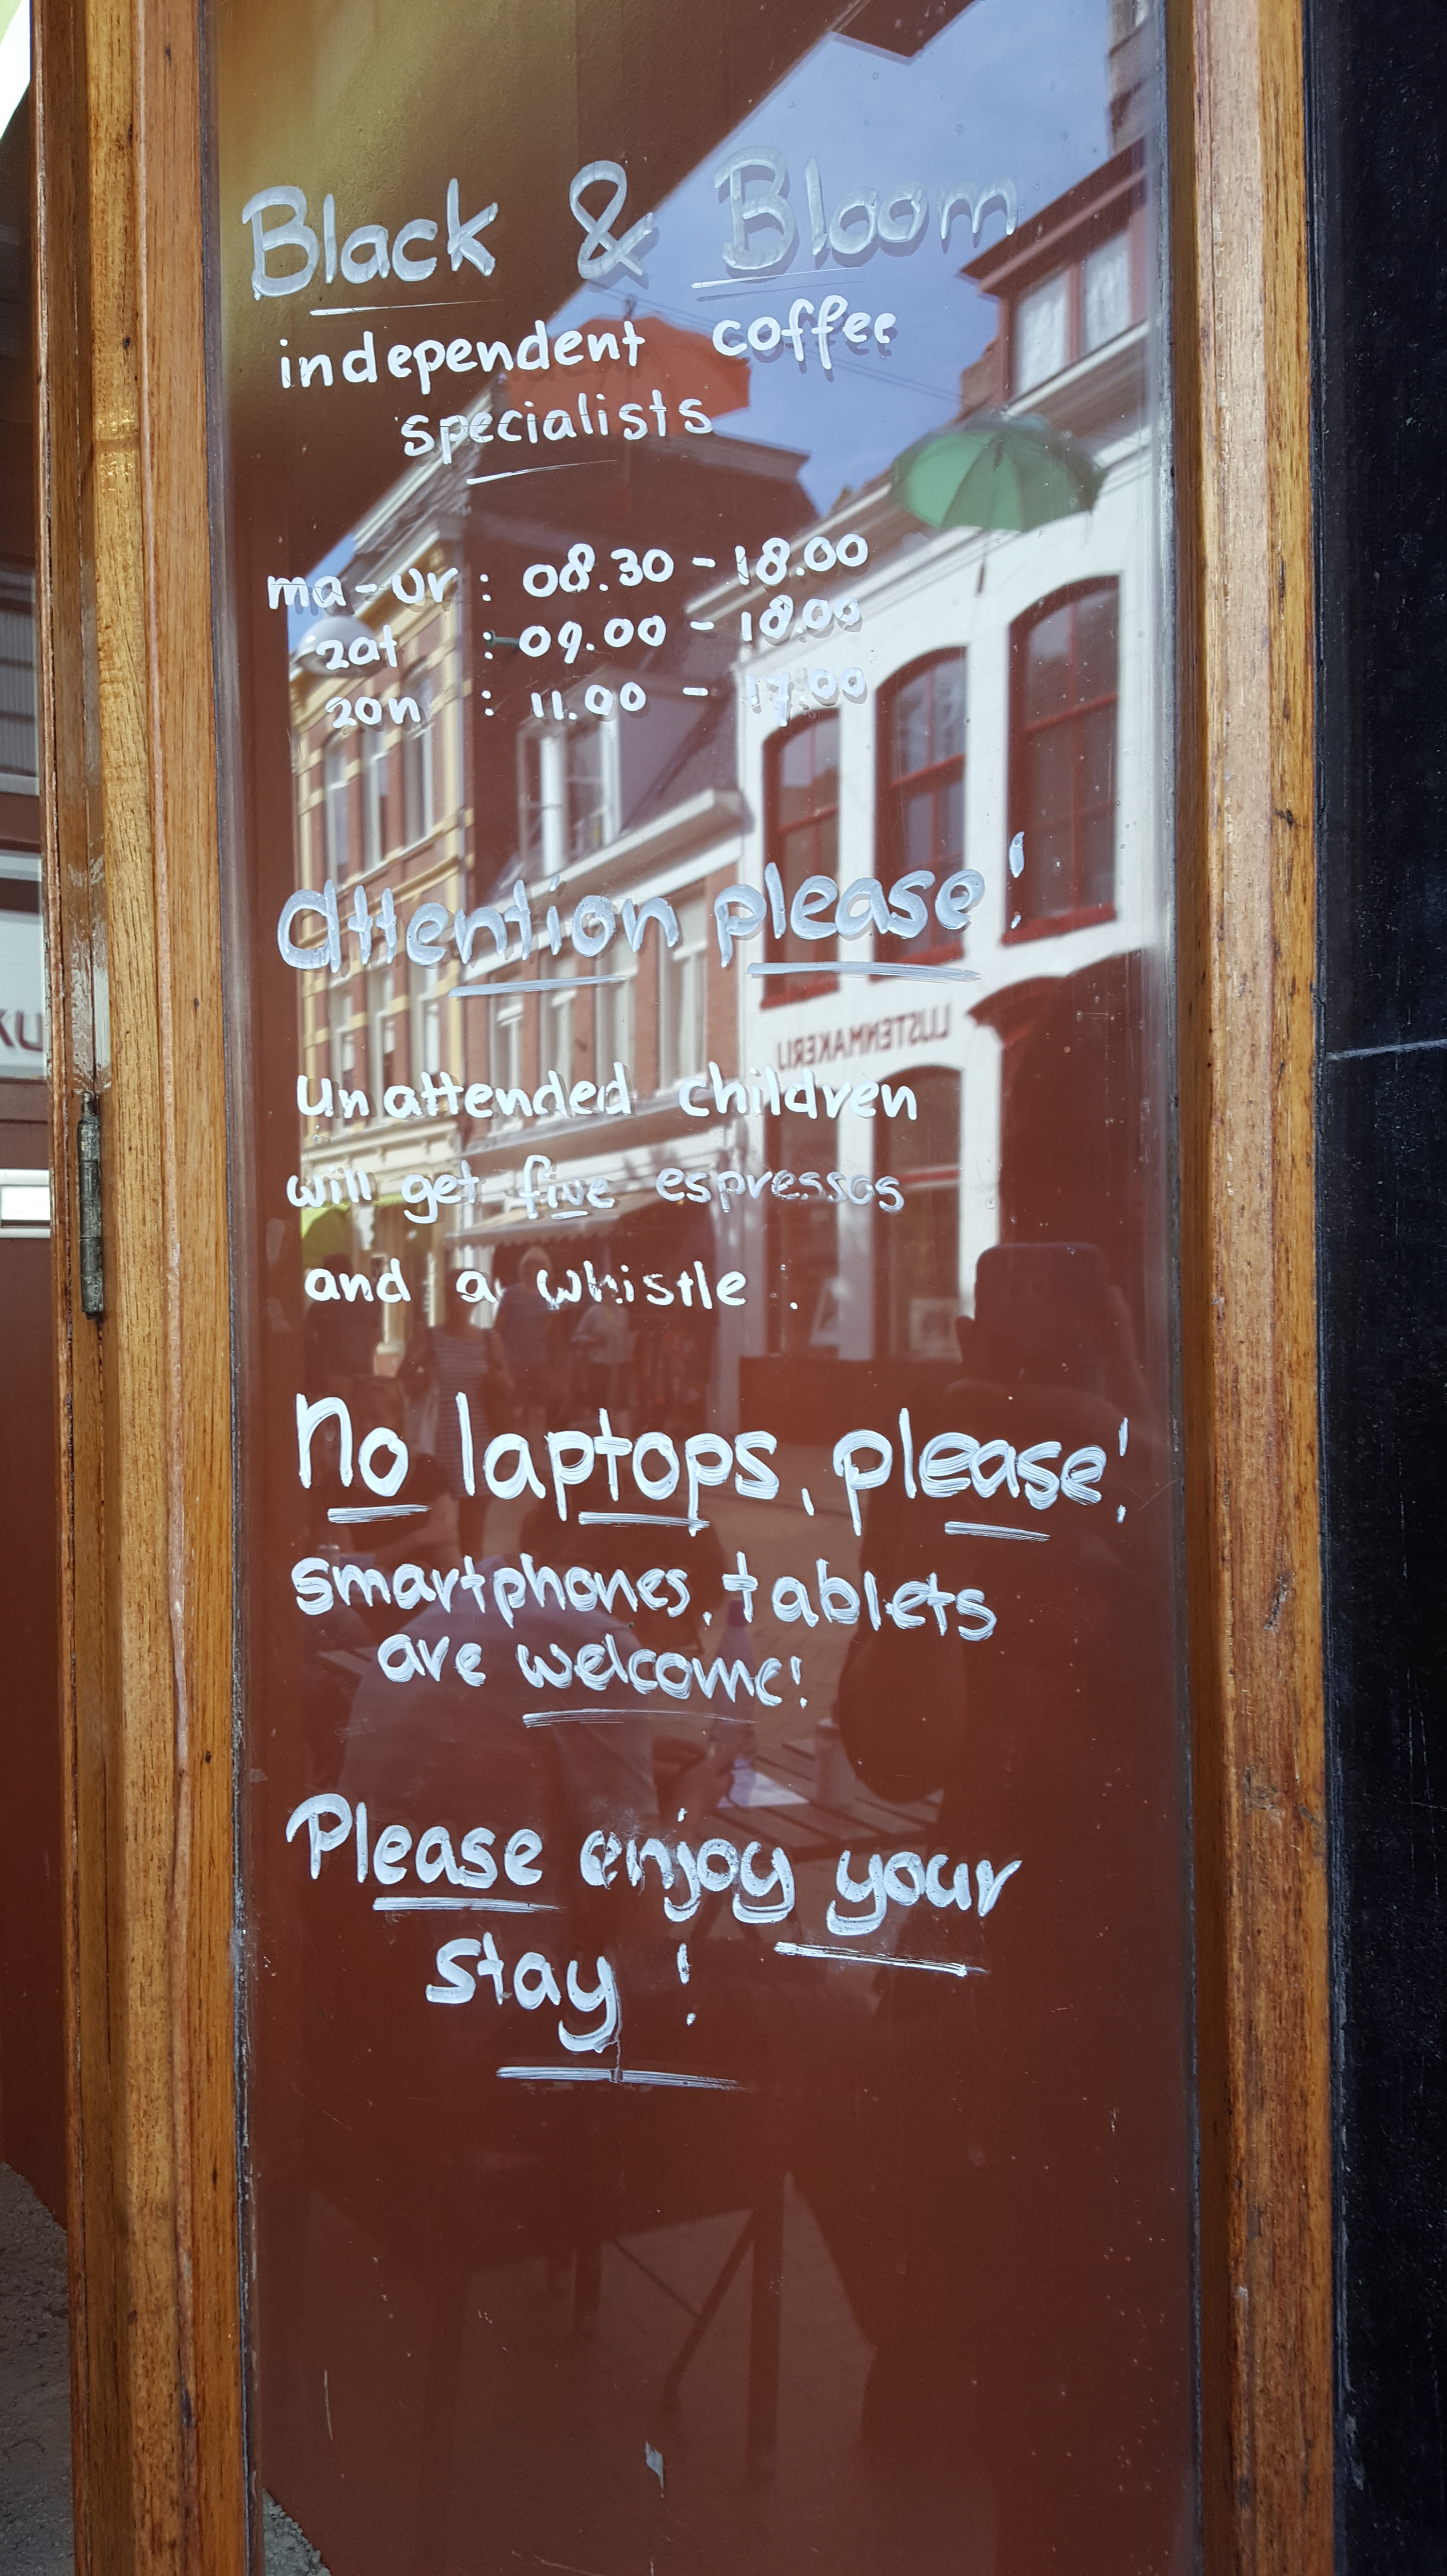 Black & Bloom
independent coffee
specialists
ma-vr : 08.30 - 18.00
zat : 09.00 - 18.00
zon : 11.00 - 17.00
attention please!
Unattended children
will get five espressos
and a whistle.
No laptops, please!
smartphones, tablets
are welcome!
Please enjoy your
stay!
LIJSTENMAKERIJ